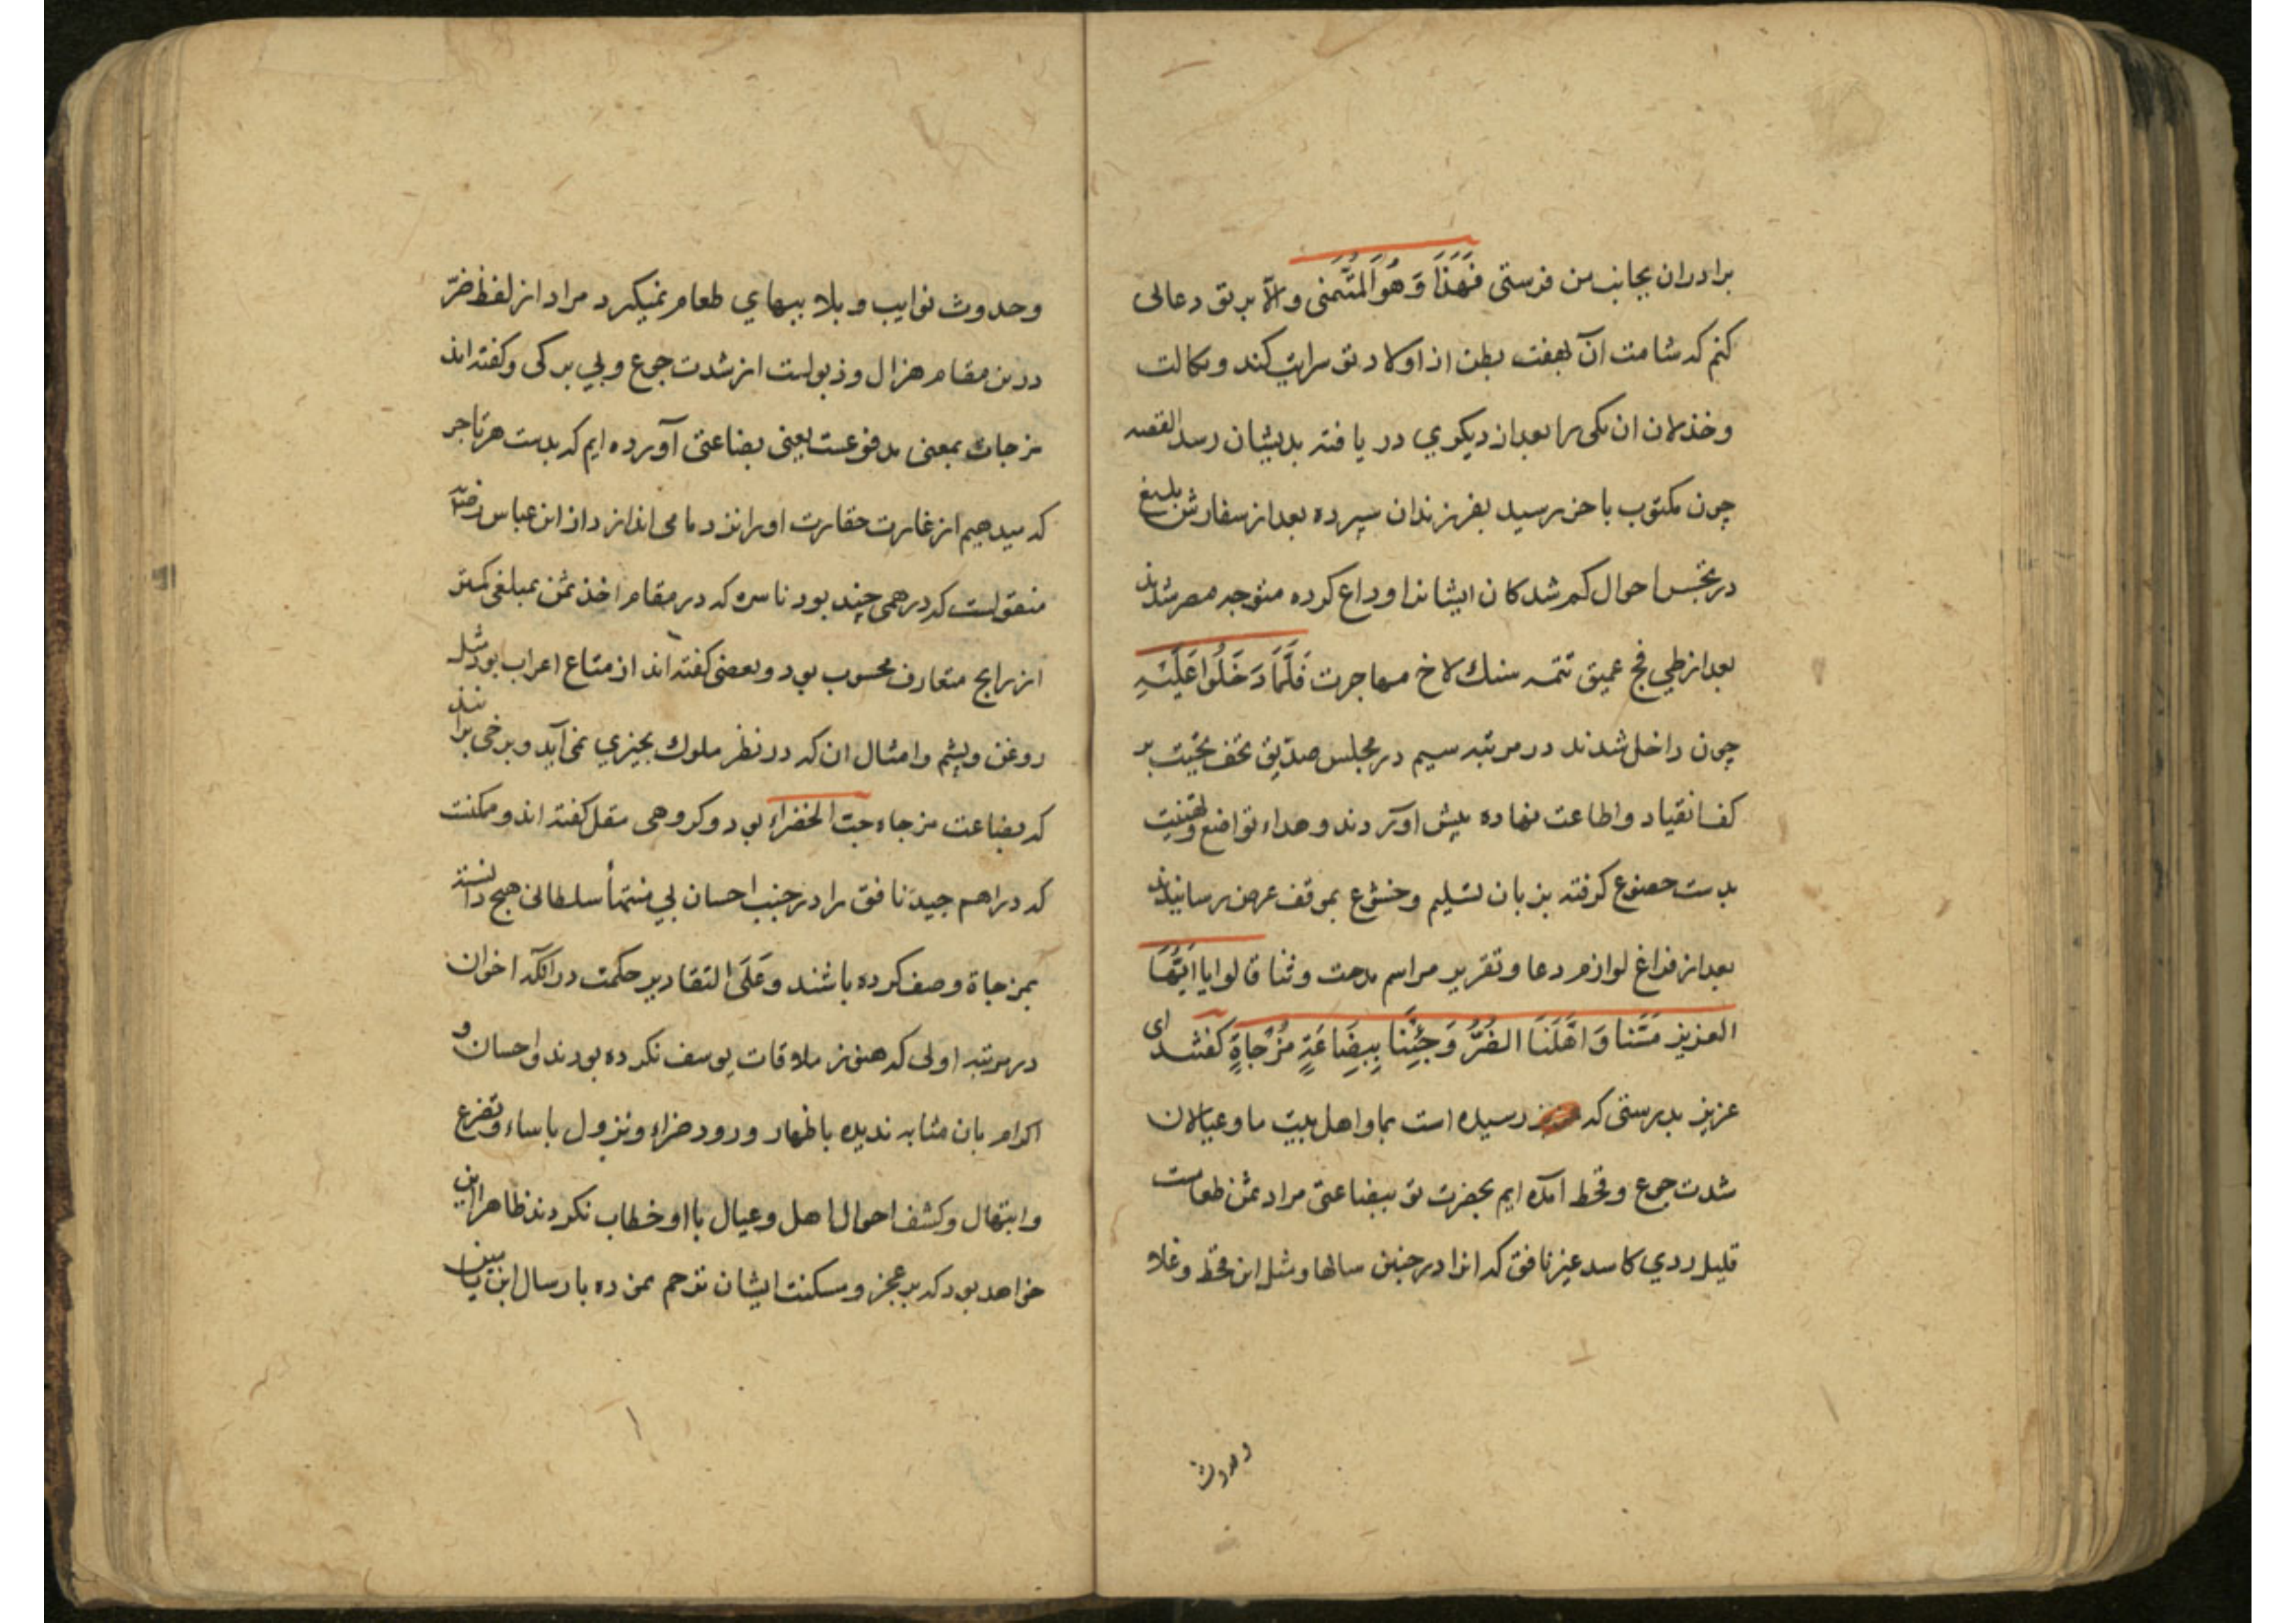 برادران بجانب من فرستی فَهَذَا وَهُوَ المُتَمَنی والّا بر تو دعائی
کنم که شامت آن بهفت بطن از اولاد تو سرایت کند و نکالت
وخذلان ان یکی را بعد از دیکری در یافته بدیشان رسد القصه
چون مکتوب باخر رسید بفرزندان سپرده بعد از سفارش بلیغ
در تجسس احوال کم شدکان ایشانرا وداع کرده متوجه مصر شدند
بعد از طی فج عمیق تتمه سنك لاخ مهاجرت فَلَمَّا دَخَلُوا عَلَیْهِ
چون داخل شدند در مرتبه سیم در مجلس صدّیق تحف تحیّت بر
کف انقیاد و اطاعت نهاده پیش اوردند و هداء تواضع وتهنیت
بدست خضوع کرفته بزبان تسلیم وخشوع بموقف عرض رسانیدند
بعد از فراغ لوازم دعا وتقریر مراسم مدحت وثنا قالوا یا ایُّهَا
العزیز مَسَّنا وَاَهْلَنَا الضُرُّ وَجِئنَا بِبِضَاعَةٍ مُزْجاةٍ کفتند ای
عزیز بدرستی که رسیده است بما واهل بیت ما وعیالان
شدت جوع وقحط امده ایم بحضرت تو ببضاعتی مراد ثمن طعامست
قلیل ردي کاسد غیر نافق که انرا در چنین سالها ومثل این قحط وغلا
وحدوث
وحدوث نوایب وبلا ببهاي طعام نمیکیرد مراد از لفظ ضرّ
درین مقام هزال وذبولست از شدت جوع وبي برکی وکفته اند
مزجات بمعنی مدفوعست یعنی بضاعتی آورده ایم که بدست هر تاجر
که میدهیم از غایت حقارت اورا نزد ما می اندازد از ابن عباس رضی
منقولست که درهمی چند بود ناسره که در مقام اخذ ثمن بمبلغی کمتر
از رایج متعارف محسوب بود وبعضی کفته اند از متاع اعراب بود مثل
روغن وپشم وامثال ان که در نظر ملوك بچیزي نمی آید وبرخی برانند
که بضاعت مزجاه حبت الخضراء بود وکروهی مقل کفته اند وممکنست
که دراهم جید نافق را در جنب احسان بي منتهأ سلطانی هیچ دانسته
بمزجاة وصف کرده باشند وعَلَی التقادیر حکمت در آنکه اخوان
در مرتبه اولی که هنوز ملاقات یوسف نکرده بودند واحسان و
اکرام بان مثابه ندیده باظهار ورود ضراء ونزول باساء وتضرع
وابتهال وکشف احوال اهل وعیال با او خطاب نکردند ظاهرا این
خواهد بود که بر عجز ومسکنت ایشان ترحم نموده بارسال ابن یامین